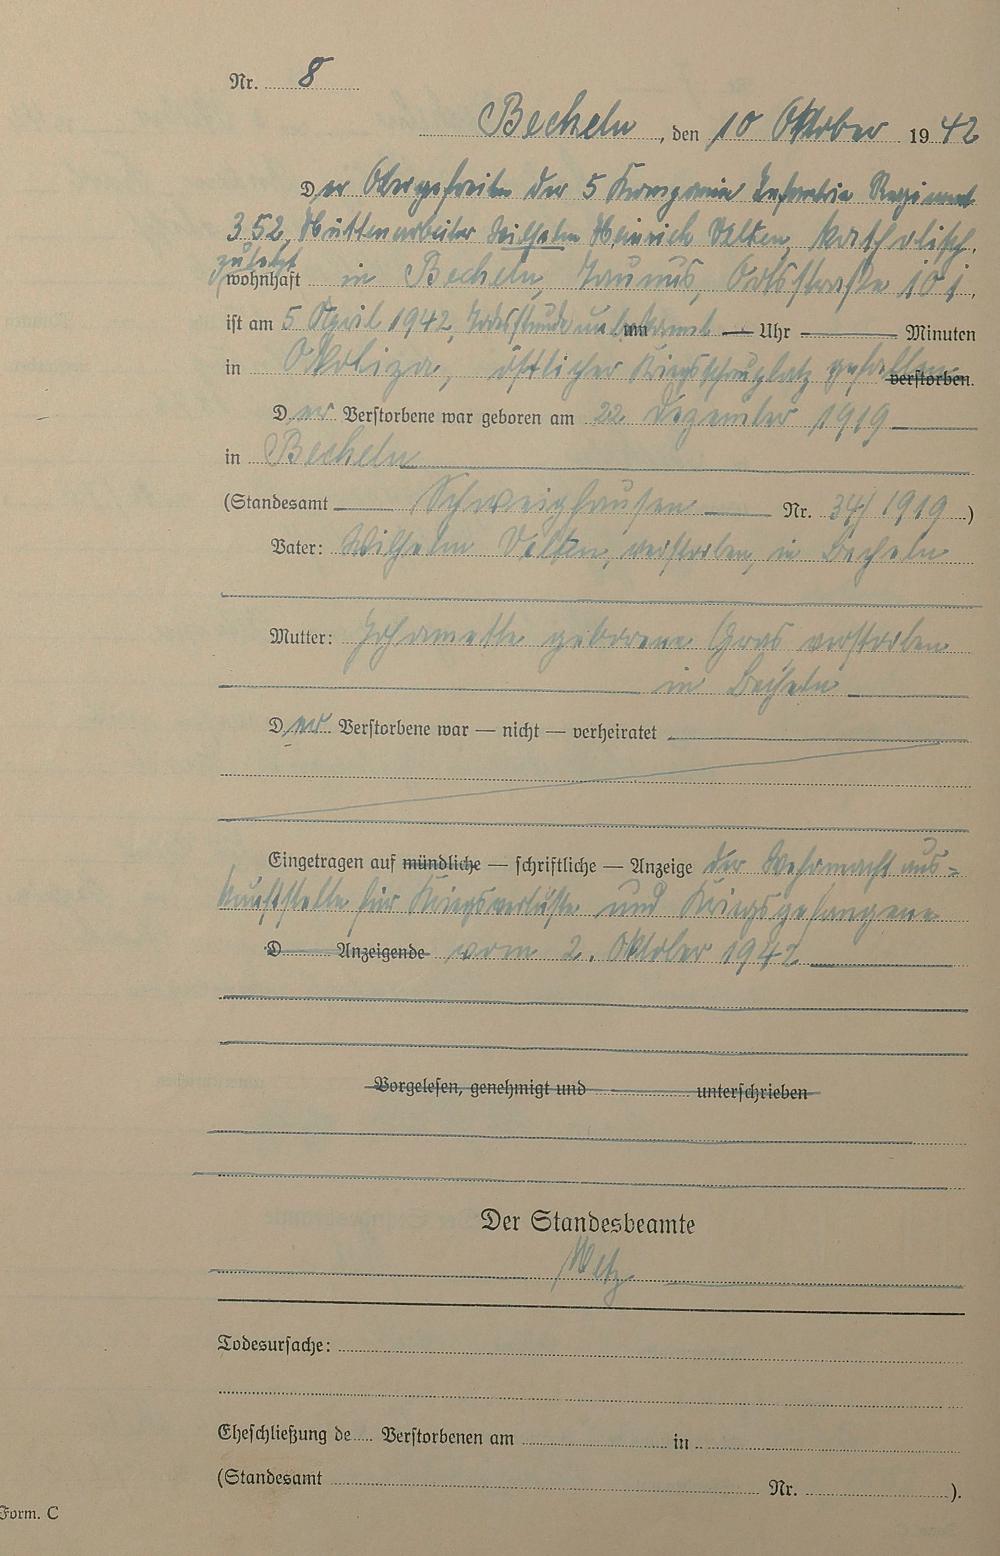 Nr. 8
Becheln, den 10 Oktober 1942
Der Obergefreite der 5 Kompanie Infantrie Regiment
352, Hüttenarbeiter Wilhelm Heinrich Velten, katholisch,
zuletzt
wohnhaft in Becheln, Taunus, Ortsstraße 101,
ist am 5 April 1942, Todesstunde unbekannt um — Uhr — Minuten
in östlicher Kriegsschauplatz gefallen verstorben.
Der Verstorbene war geboren am 22 Dezember 1919
in Becheln
(Standesamt Schweighausen Nr. 34/1919)
Vater: Wilhelm Velten, verstorben, in Becheln
Mutter: geborene Gras verstorben
in Becheln
Der Verstorbene war — nicht — verheiratet
Eingetragen auf mündliche — schriftliche — Anzeige der Wehrmachtaus=
kunftstelle für Kriegsverluste und Kriegsgefangene
D Anzeigende vom 2. Oktober 1942
Vorgelesen, genehmigt und unterschrieben
Der Standesbeamte
Metz
Todesursache:
Eheschließung de Verstorbenen am in
(Standesamt Nr. ).
Form. C